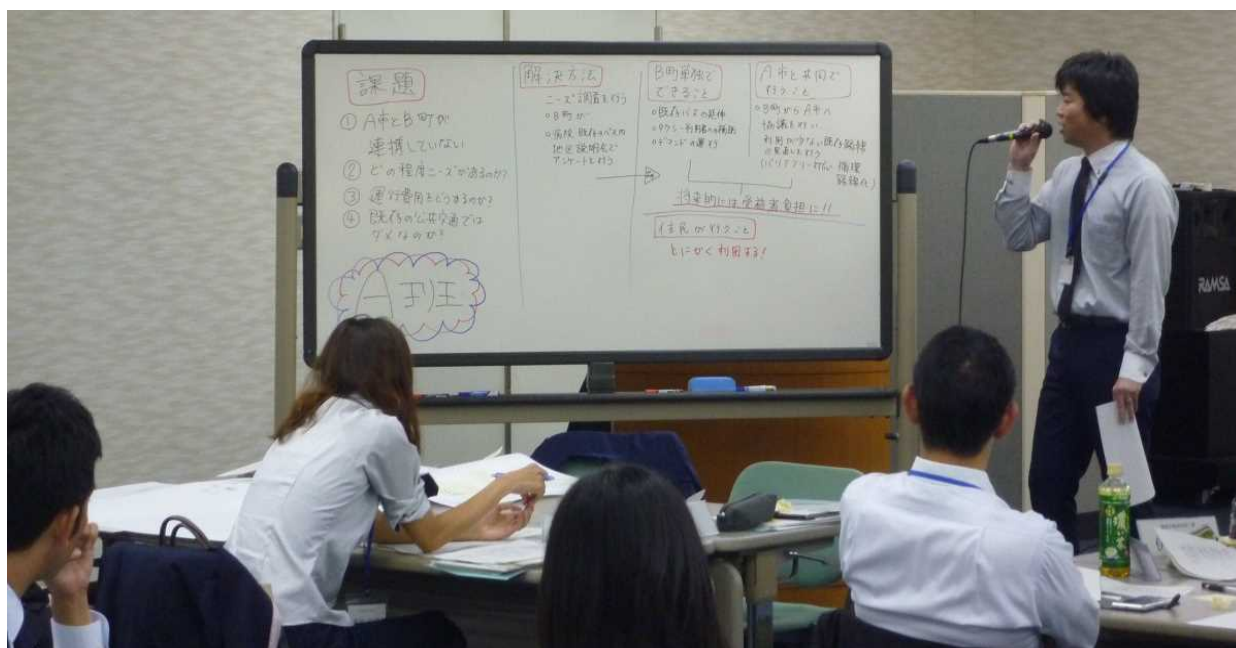 課題
① A市とB町が
連携していない
② どの程度ニーズがあるのか?
③ 運行費用をどうするのか?
④ 既存の公共交通では
ダメなのか?
一班
解決方法
ニーズ調査を行う
○B町が
○病院、既存のバス内
地区説明会で
アンケートを行う
B町単独で
できること
○既存バスの延伸
○タクシー利用者への補助
○デマンドの運行
A市と共同で
行うこと
○B町からA市へ
協議を行い
利用が少ない既存路線
の見直しを行う
(バリアフリー対応、循環
路線化)
将来的には受益者負担に!!
住民が行うこと
とにかく利用する!
RAMSA